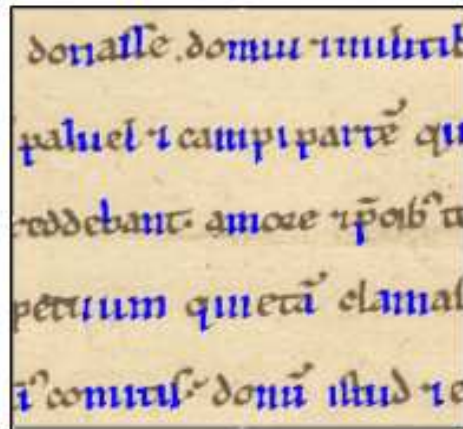 donasse. domui ⁊ militib
paluel ⁊ campi partē qu
reddebant. amore ⁊ p̄cib⁹ te
petuum quietā clamas
comitis. donū istud ⁊ c